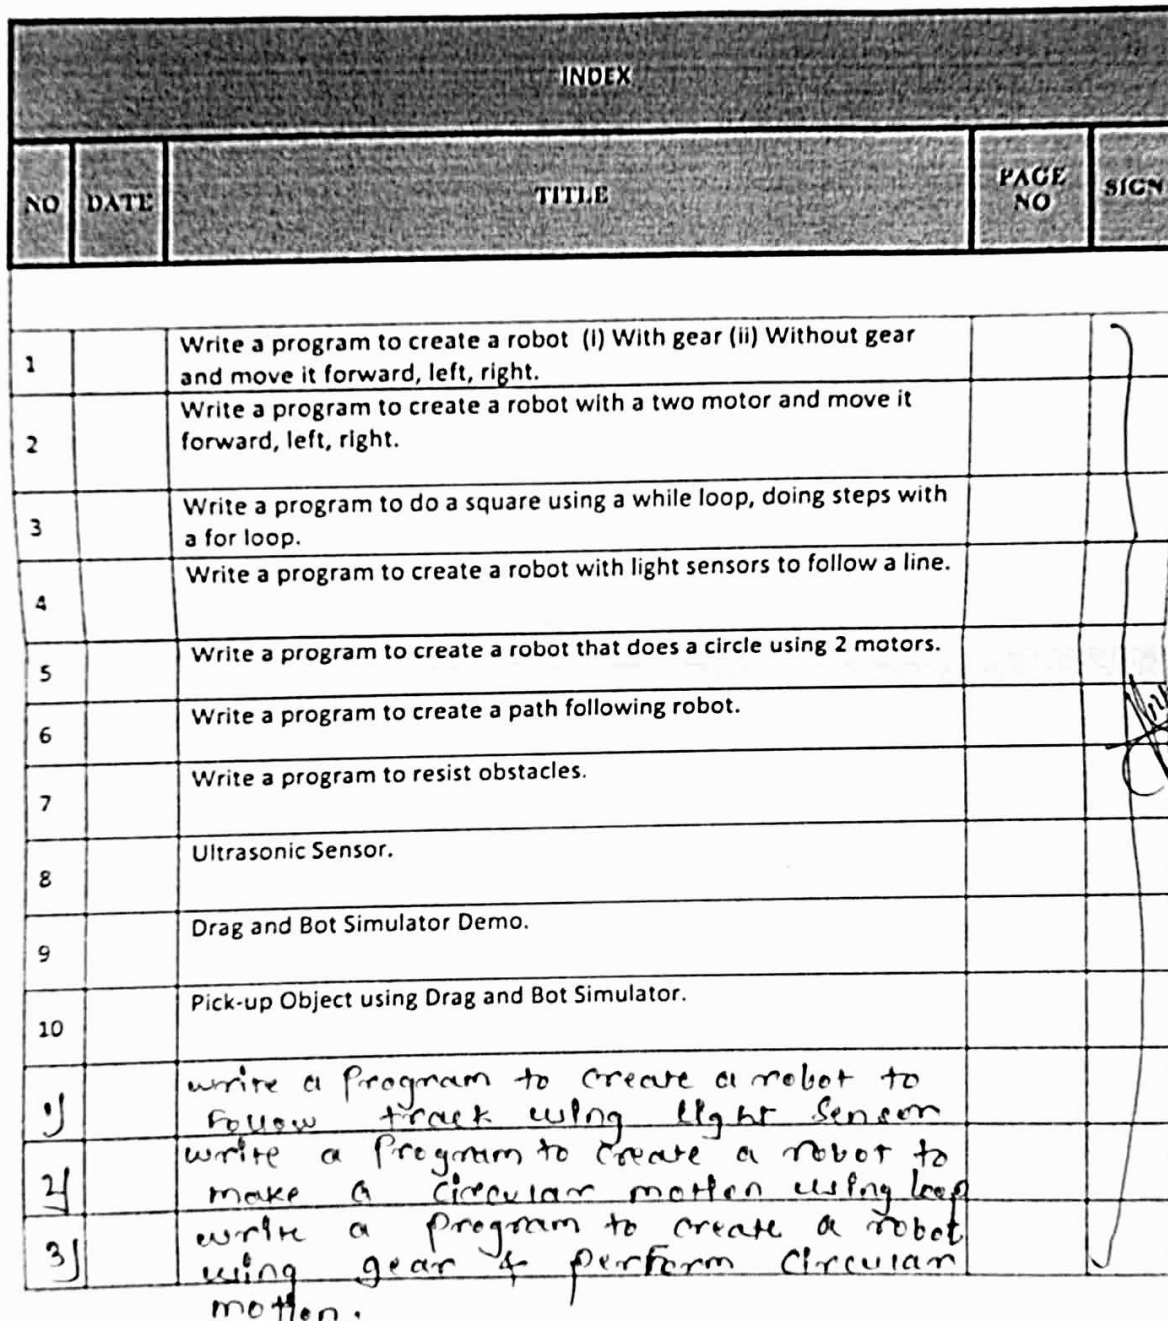 INDEX
NO DATE TITLE PAGE NO SIGN
1 Write a program to create a robot (i) With gear (ii) Without gear
and move it forward, left, right.
2 Write a program to create a robot with a two motor and move it
forward, left, right.
3 Write a program to do a square using a while loop, doing steps with
a for loop.
4 Write a program to create a robot with light sensors to follow a line.
5 Write a program to create a robot that does a circle using 2 motors.
6 Write a program to create a path following robot.
7 Write a program to resist obstacles.
8 Ultrasonic Sensor.
9 Drag and Bot Simulator Demo.
10 Pick-up Object using Drag and Bot Simulator.
1) write a program to create a robot to
follow track using light sensor
2) write a program to create a robot to
make a circular motion using loop
3) write a program to create a robot
using gear & perform circular
motion.